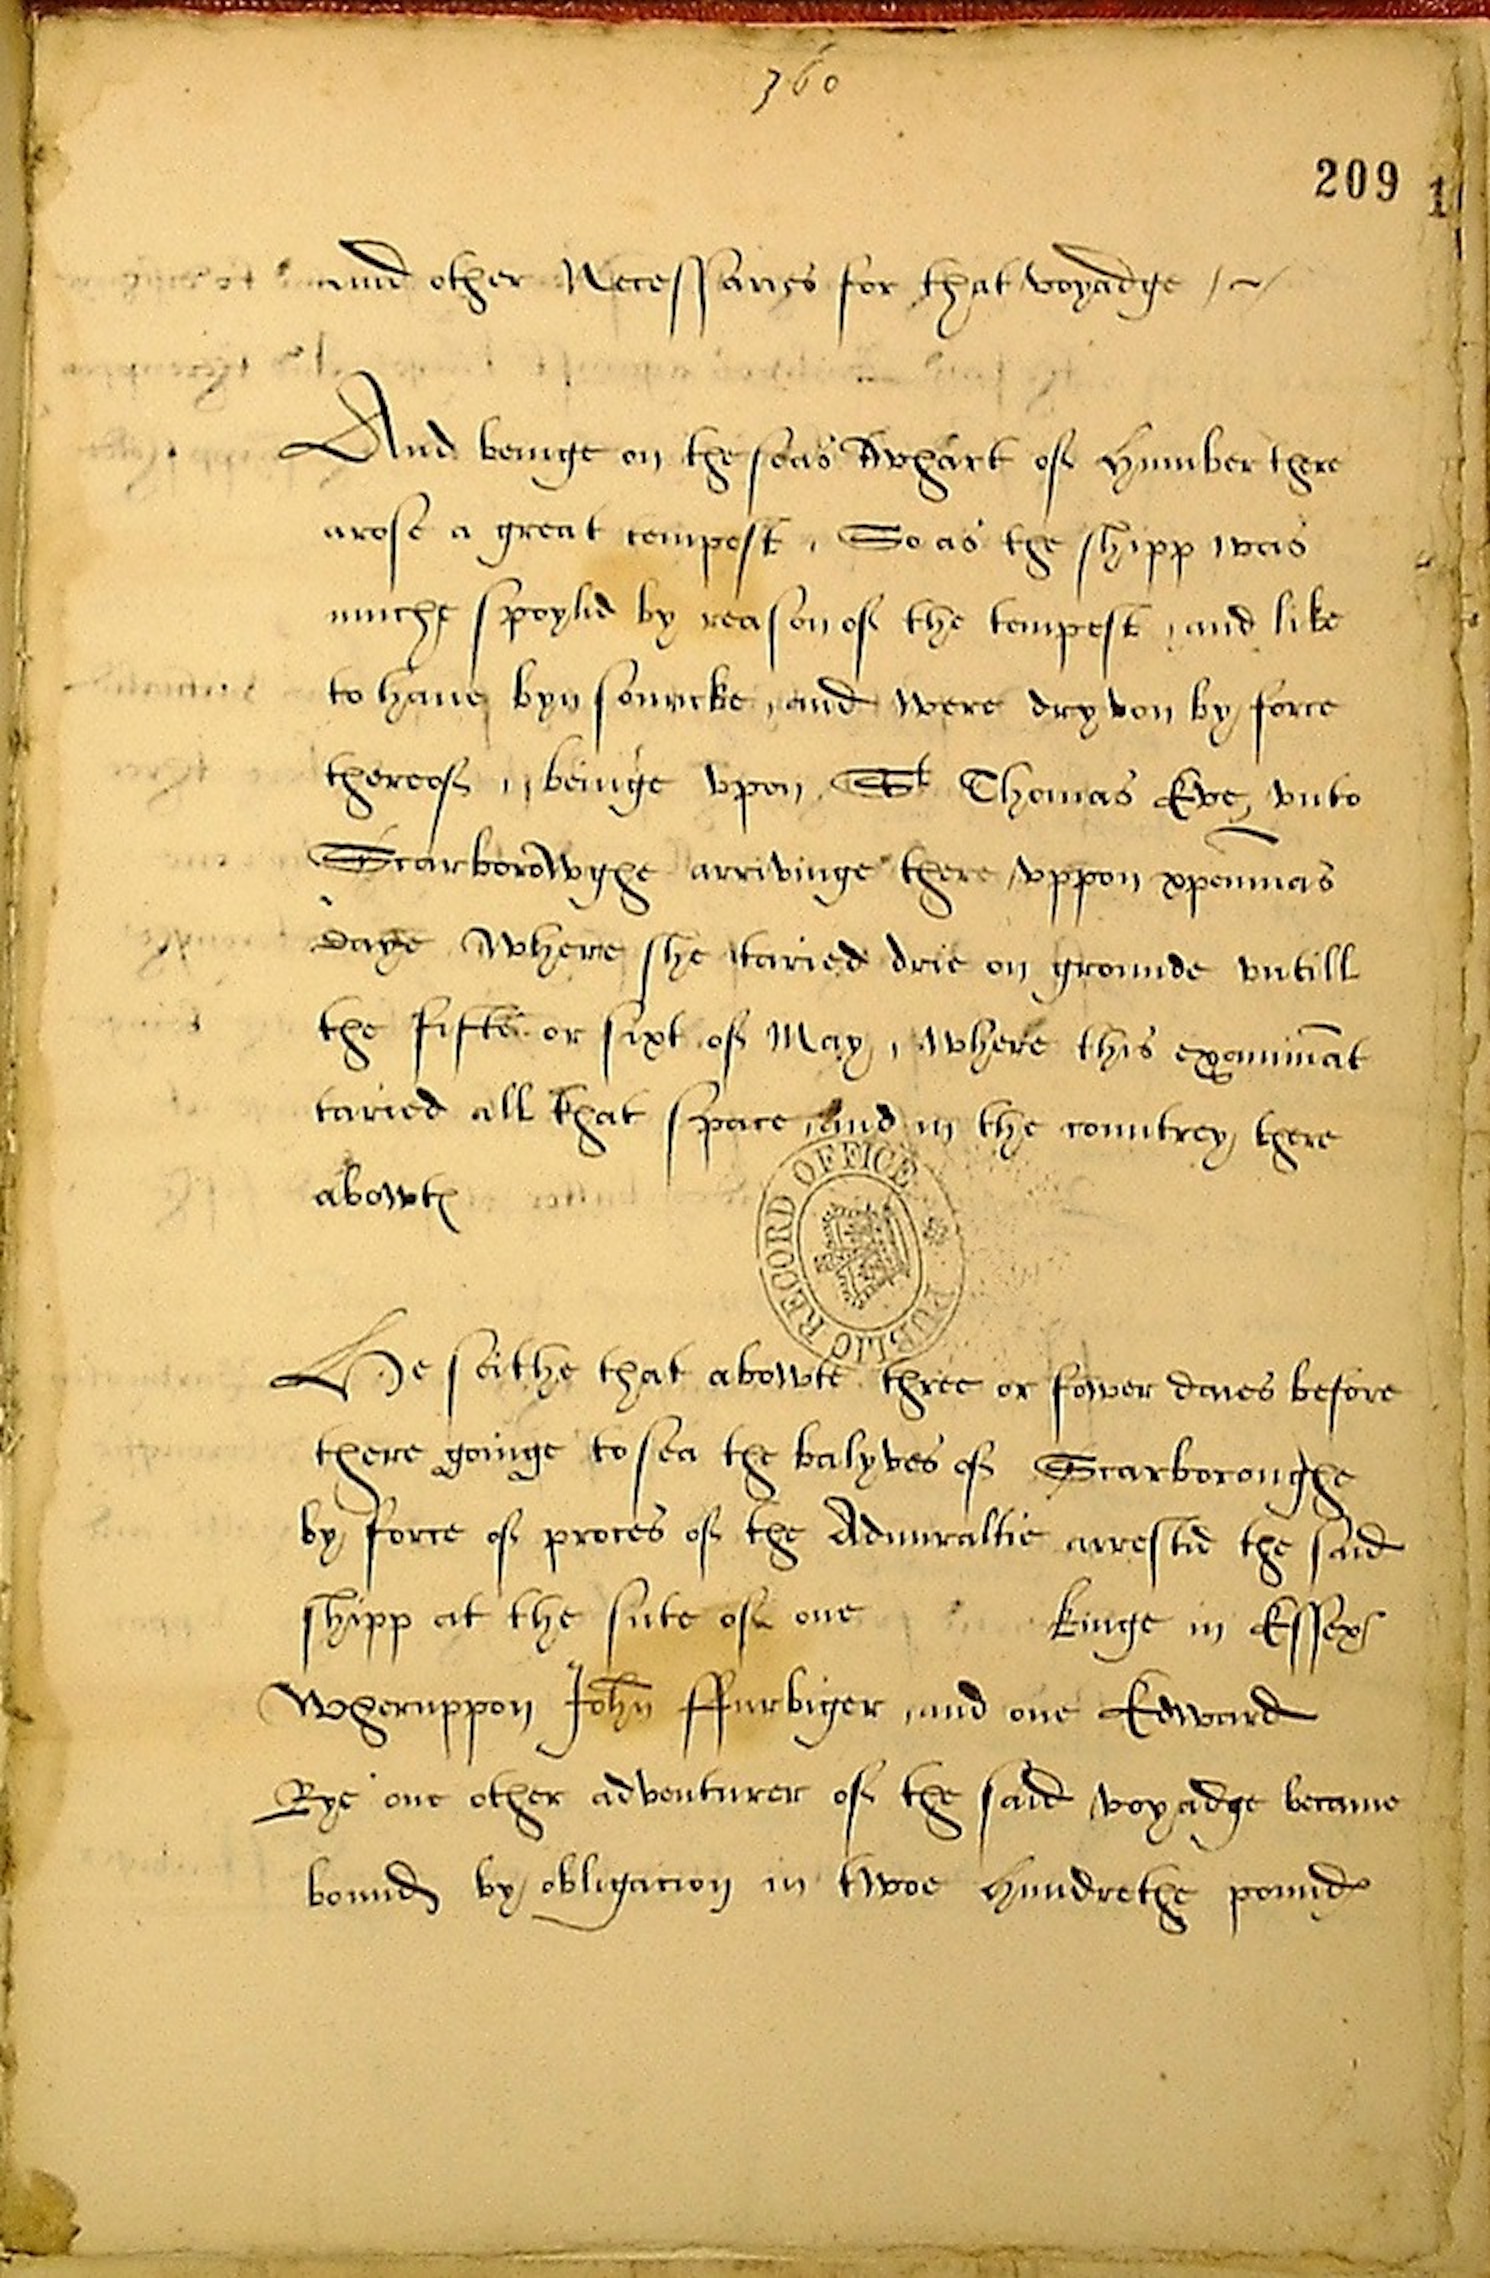 360
209
1
and other Necessaries for that voyadge
And beinge on the seas Awhart of Humber there
arose a great tempest, So as the shipp was
muche spoylid by reason of the tempest, and like
to haue byn soncke, and were dryven by force
thereof, beinge vpon St Thomas Eve, vnto
Scarborowghe arrivinge there vppon xpenmas
Daye Where she taried drie on grounde vntill
the fifte or sixt of May, where this examinat
taried all that space, and in the countrey there
abowt
He seithe that abowte three or fower daies before
there goinge to sea the balyves of Scarboroughe
by force of proces of the Admiraltie arrestid the said
shipp at the sute of one kinge in Essex
Wheruppon John ffurbiger, and one Edward
Rye one other adventurer of the said voyadge became
bound by obligacion in twoe hundrethe pound
PUBLIC RECORD OFFICE